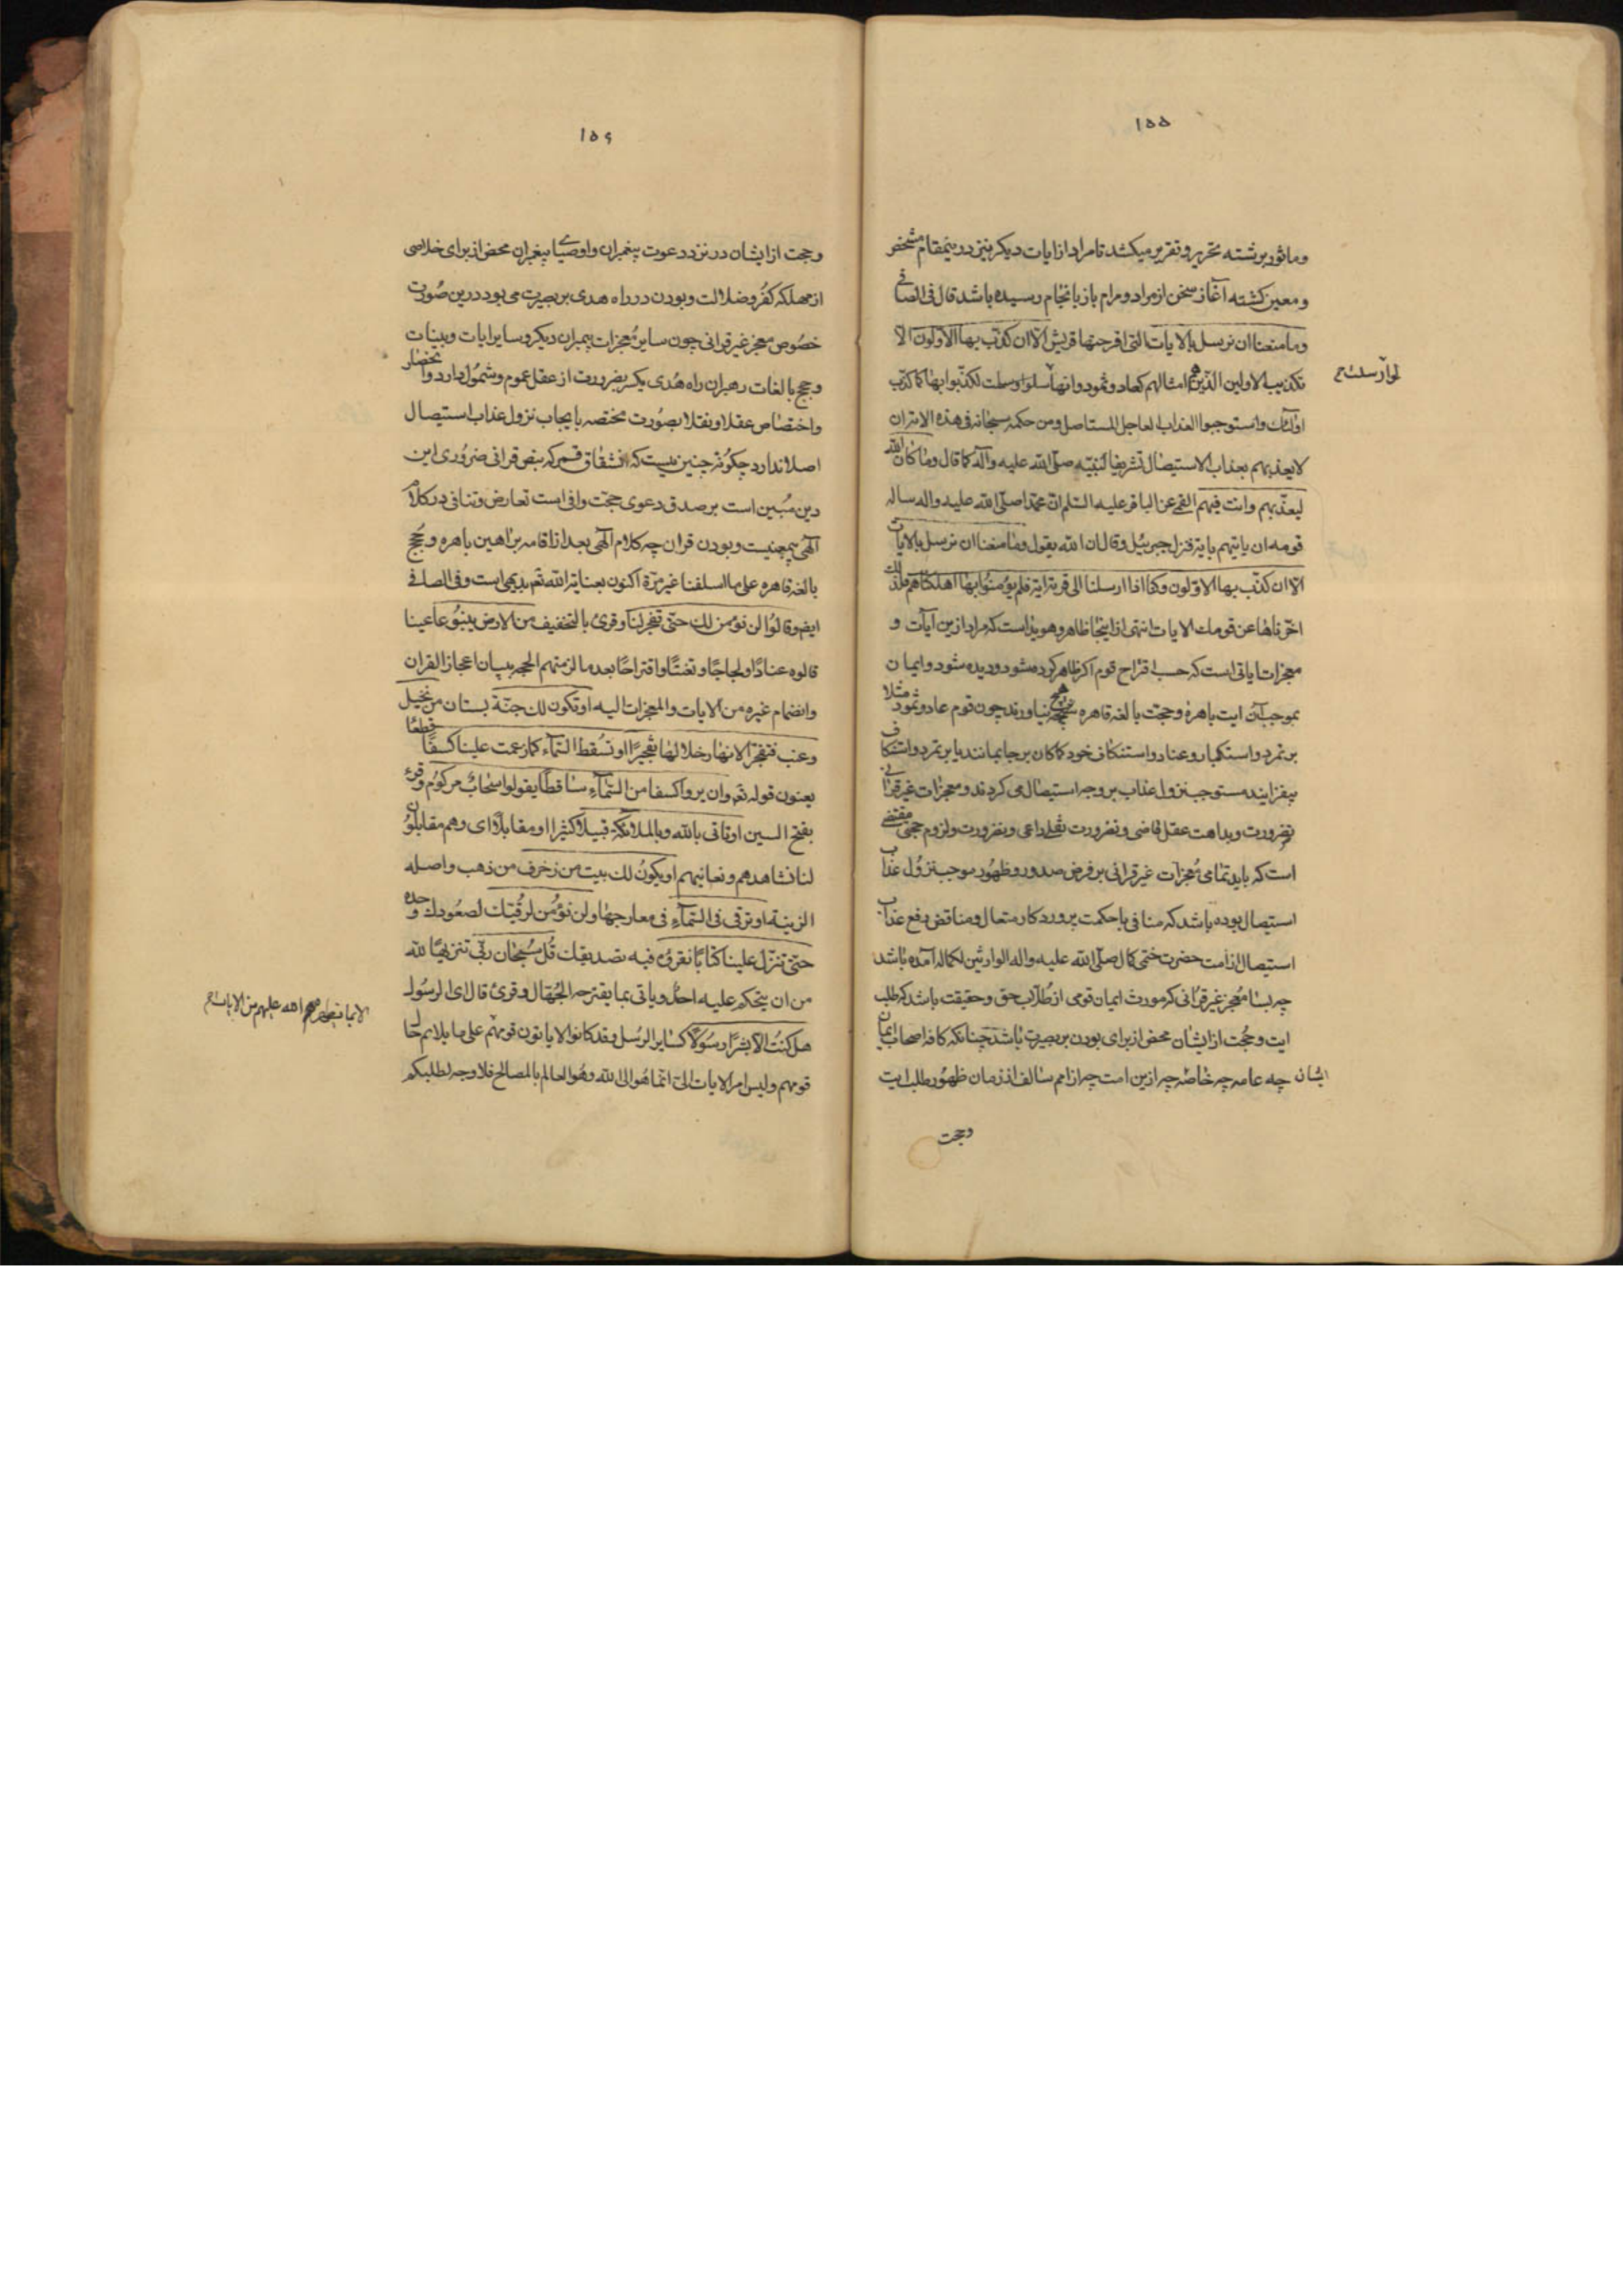 ١٥٥
وماثور برشته تحرير و تقرير ميكشد تا مراد از ايات ديكر نيز در ينمقام مشخص
و معين كشته آغاز سخن از مراد و مرام باز بانجام رسيده باشد قال فى الصافى
وما منعنا ان نرسل بالايات التى اقرحتها قريش الّا ان كذّب بها الاولون الا
تكذيب الاولين الّذين هم امثالهم كعاد و ثمود وانها لو ارسلت لكذّبوا بها كما كذّب
لو ارسلت ح
اولٰئك واستوجبوا العذاب العاجل المستاصل ومن حكمه سبحانه فى هذه الامة ان
لايعذبهم بعذاب الاستيصال تشريفا لنبيّه صلّى الله عليه وآله كما قال وما كان الله
ليعذّبهم وانت فيهم القمى عن الباقر عليه السّلم انّ محمّدا صلّى الله عليه واله ساله
قومه ان ياتيهم باية فنزل جبرئيل وقال ان الله يقول وما منعنا ان نرسل بالايات
الّا ان كذّب بها الاوّلون وكنّا اذا ارسلنا الى قرية اية فلم يؤمنوا بها اهلكناهم فلذلك
اخّرناها عن قومك الايات انتهى از اينجا ظاهر و هويداست كه مراد ازين آيات و
معجزات اياتى است كه حسب اقتراح قوم اكر ظاهر كرده شود و ديده شود و ايمان
بموجب آن ايت باهرهٔ و حجت بالغه قاهره هيچ نياورند چون قوم عاد و ثمود مثلا
بر تمرد و استكبار و عناد و استنكاف خود كماكان بر جا بمانند يا بر تمرد و استنكاف
بيفزايند مستوجب نزول عذاب بر وجه استيصال مى كردند و معجزات غير قرانى
بضرورت و بداهت عقل قاضى و بضرورت نقلى داعى و بضرورت و لزوم حجى مقتضى
است كه بايد تمامى معجزات غير قرانى بر فرض صدور و ظهور موجب نزول عذاب
استيصال بوده باشد كه منافى با حكمت پروردكار متعال و مناقض رفع عذاب
استيصال از امت حضرت ختمى كمال صلّى الله عليه واله الوارثين لكماله آمده باشد
چه بسا معجز غير قرانى كه مورث ايمان قومى از طلاب حق و حقيقت باشد كه طلب
ايت و حجت از ايشان محض از براى بودن بر بصيرت باشد چنانكه كافه اصحاب ايمان
ايشان چه عامه چه خاصه چه ازين امت چه از امم سالف از زمان ظهور طلب ايت
و حجت
١٥٦
و حجت از ايشان در نزد دعوت پيغمبران و اوصياى پيغمبران محض از براى خلاصى
از مهلكه كفر و ضلالت و بودن در راه هدى بر بصيرت مى بود درين صورت
خصوص معجز غير قرانى چون ساير معجزات پيمبران ديكر و ساير ايات و بينات
و حجج بالغات رهبران راه هدى يكسر بضرورت از عقل عموم و شمول دارد و انحصار
و اختصاص عقلا و نقلا بصورت مختصه بايجاب نزول عذاب استيصال
اصلا ندارد چكونه چنين نيست كه انشقاق قمر كه بنص قرانى ضرورى اين
دين مبين است بر صدق دعوى حجت وافى است تعارض و تنافى در كلام
آلهى بيمعنيست و بودن قران چه كلام آلهى بعد از اقامه براهين باهره و حجج
بالغه قاهره على ما اسلفنا غير مرّة اكنون بعناية الله تعم بديهى است وفى الصافى
ايض وقالوا لن نؤمن لك حتّى تفجر لنا وقرئ بالتخفيف من الارض ينبوعا عينا
قالوه عنادًا ولجاجًا وتعنتًا واقتراحًا بعد ما لزمتهم الحجه ببيان اعجاز القران
وانضمام غيره من الايات والمعجزات اليه او تكون لك جنّة بستان من نخيل
وعنب فتفجّر الانهار خلالها تفجيرًا او تسقط السّماء كما زعمت علينا كسفًا قطعًا
يعنون قوله تعم وان يروا كسفا من السّماءِ ساقطا يقولوا سحابٌ مركوم وقرئ
بفتح السين او تاتى بالله وبالملائكة قبيلا كثيرا او مقابلًا اى وهم مقابلون
لنا نشاهدهم ونعاينهم او يكون لك بيت من زخرف من ذهب واصله
الزينة او ترقى فى السّماءِ فى معارجها ولن نؤمن لرقيّك لصعودك وحده
حتى تنزّل علينا كتابًا نقرؤه فيه تصديقك قُل سبحان ربّى تنزيهًا لله
من ان يتحكم عليه احد او ياتى بما يقترحه الجهال وقرئ قال اى الرسول
هل كنت الّا بشرًا رسولًا كساير الرسل وقد كانوا لا ياتون قومهم الا بما يظهره الله عليهم من الايات ح على ما يلائم حال
قومهم وليس امر الايات الىّ انّما هو الى الله وهو العالم بالمصالح فلا وجه لطلبكم